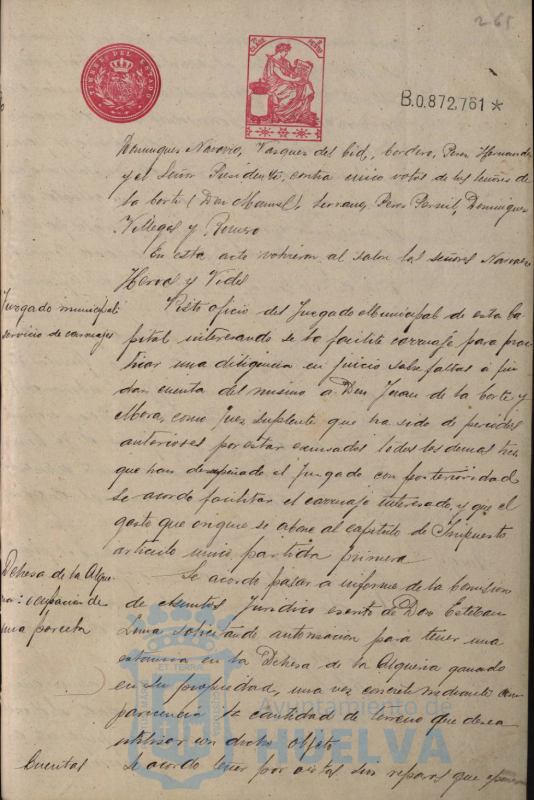 265
TIMBRE DEL ESTADO
B.0.872,761 *
Dominguez Navarro, Vazquez del Cid, Cordero, Perez Hernandez
y el Señor Presidente, contra cinco votos de los Señores de
la Corte (Don Manuel), Serrano, Perez Pernil, Dominguez
Villegas y Romero
En este acto volvieron al salon los señores Navarro
Hervas y Vidal
Juzgado municipal
servicio de carruajes
Visto oficio del Juzgado Municipal de esta Ca-
pital interesando se le facilite carruaje para prac-
ticar una diligencia en juicio sobre faltas á fin
dar cuenta del mismo á Don Juan de la Corte y
Mora, como Juez suplente que ha sido de periodos
anteriores por estar excusados todos los demas
que han desempeñado el Juzgado con posterioridad
se acordó facilitar el carruaje interesado, y que el
gasto que origine se abone al capítulo de Impuesto
articulo unico partida primera
Dehesa de la Alque-
ria: ocupacion de
una parcela
Se acordó pasar a informe de la Comision
de asuntos Juridicos escrito de Don Esteban
Lima solicitando autorizacion para tener una
estancia en la Dehesa de la Alqueria ganado
en su propiedad, una vez concrete mediante com-
parecencia la cantidad de terreno que desea
utilizar con dicho objeto
Cuentas
Se acordó tener por vistas sin reparos que
Ayuntamiento de
HUELVA